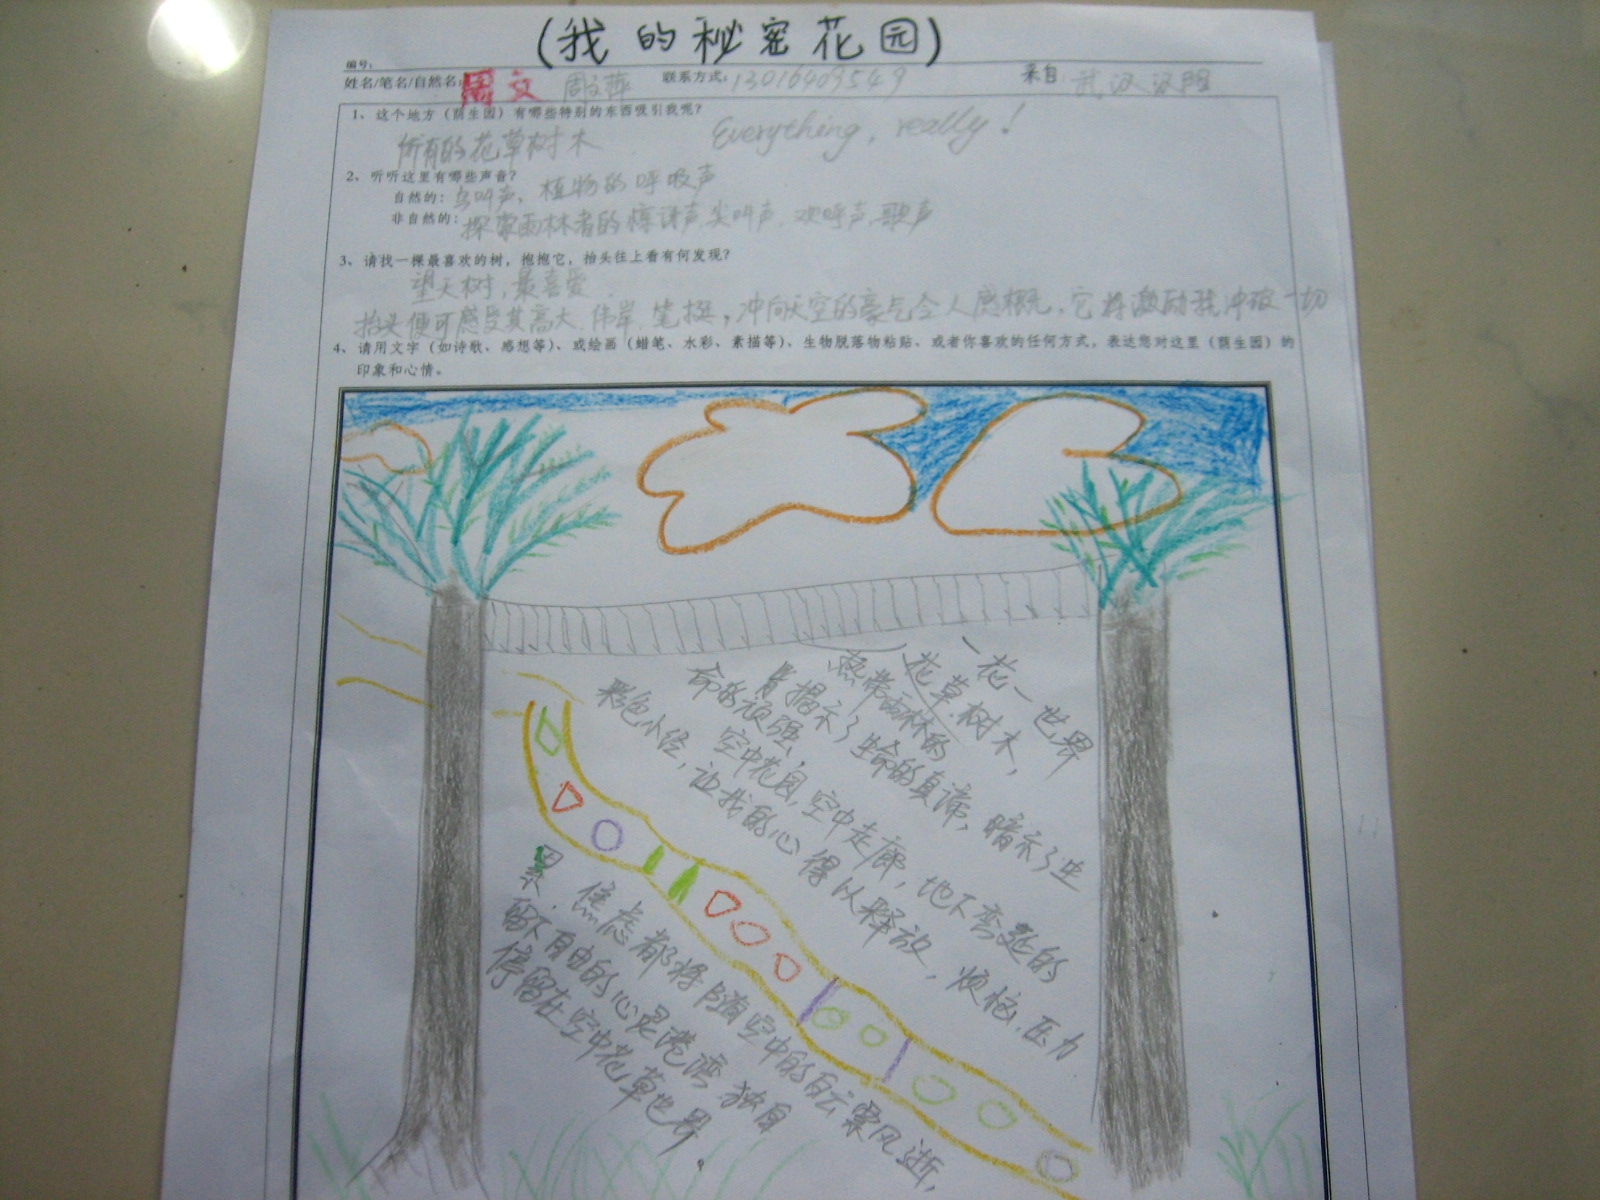 (我的秘密花园)
编号:
姓名/笔名/自然名: 周文 周文萍 联系方式: 13016409549 来自: 武汉汉阳
1、这个地方（荫生园）有哪些特别的东西吸引我呢?
所有的花草树木 Everything, really!
2、听听这里有哪些声音?
自然的: 鸟叫声、植物的呼吸声
非自然的: 探索雨林者的 声、尖叫声、欢呼声、歌声
3、请找一棵最喜欢的树，抱抱它，抬头往上看有何发现?
望天树,最喜爱.
抬头便可感受其高大、伟岸、笔挺，冲向天空的豪气令人感慨，它将激励我冲破一切
4、请用文字（如诗歌、感想等）、或绘画（蜡笔、水彩、素描等）、生物脱落物粘贴、或者你喜欢的任何方式，表达您对这里（荫生园）的
印象和心情。
一花一世界
花草树木，
热带雨林的
揭示了生命的真谛，暗示了生
命的顽强，
空中花园，空中走廊，地下弯延的
彩色小径，让我的心得以释放，烦恼、压力
累、焦虑都将随空中的白云飘风逝，
留下自由的心灵港湾 独自
停留在空中花草世界。